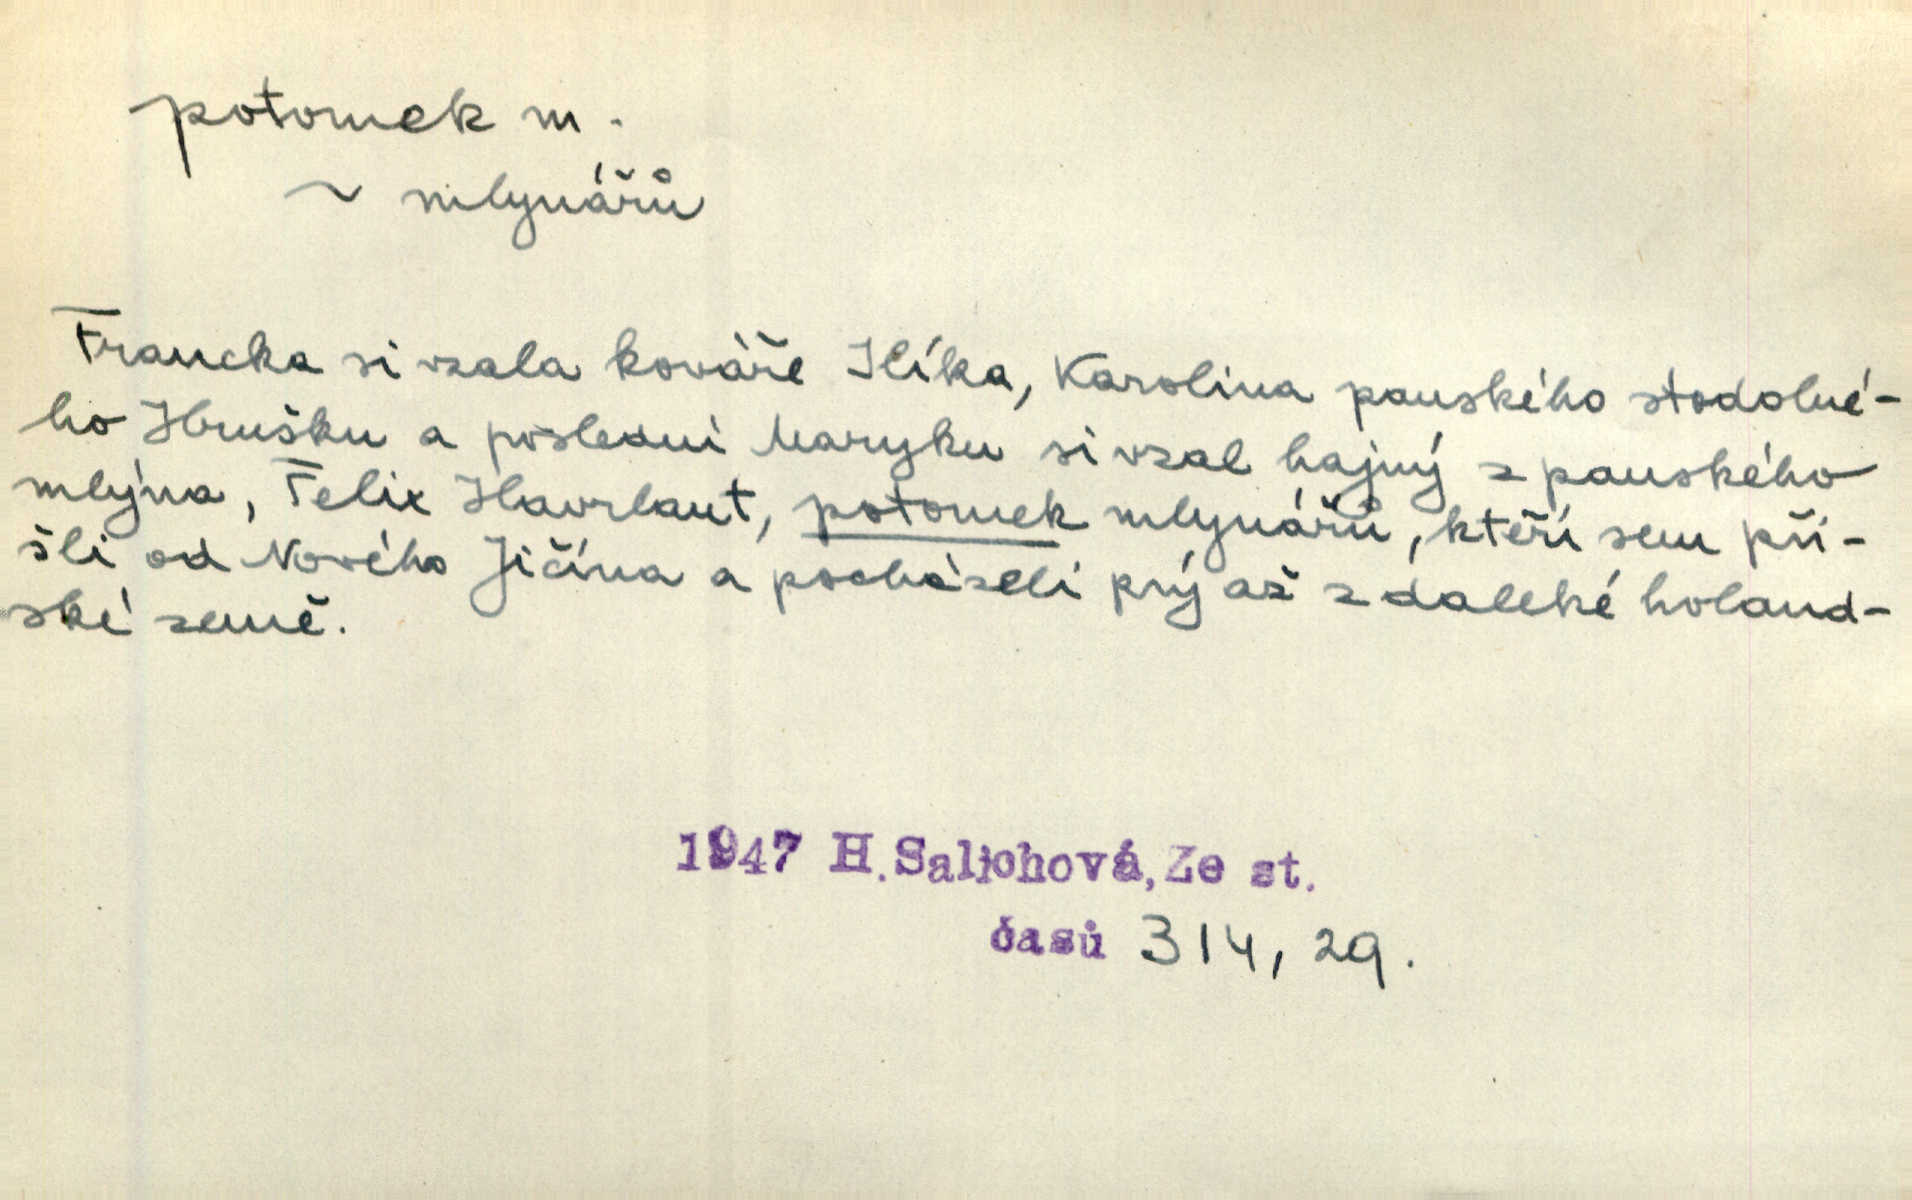 potomek m.
~ mlynářů
Francka si vzala kováře Ilíka, Karolina panského stodolné-
ho Hrušku a poslední Maryku si vzal hajný z panského
mlýna, Felix Havrlant, potomek mlynářů, kteří sem při-
šli od Nového Jičína a pocházeli prý až z daleké holand-
ské země.
1947 H. Salichová, Ze st.
časů 314, 29.